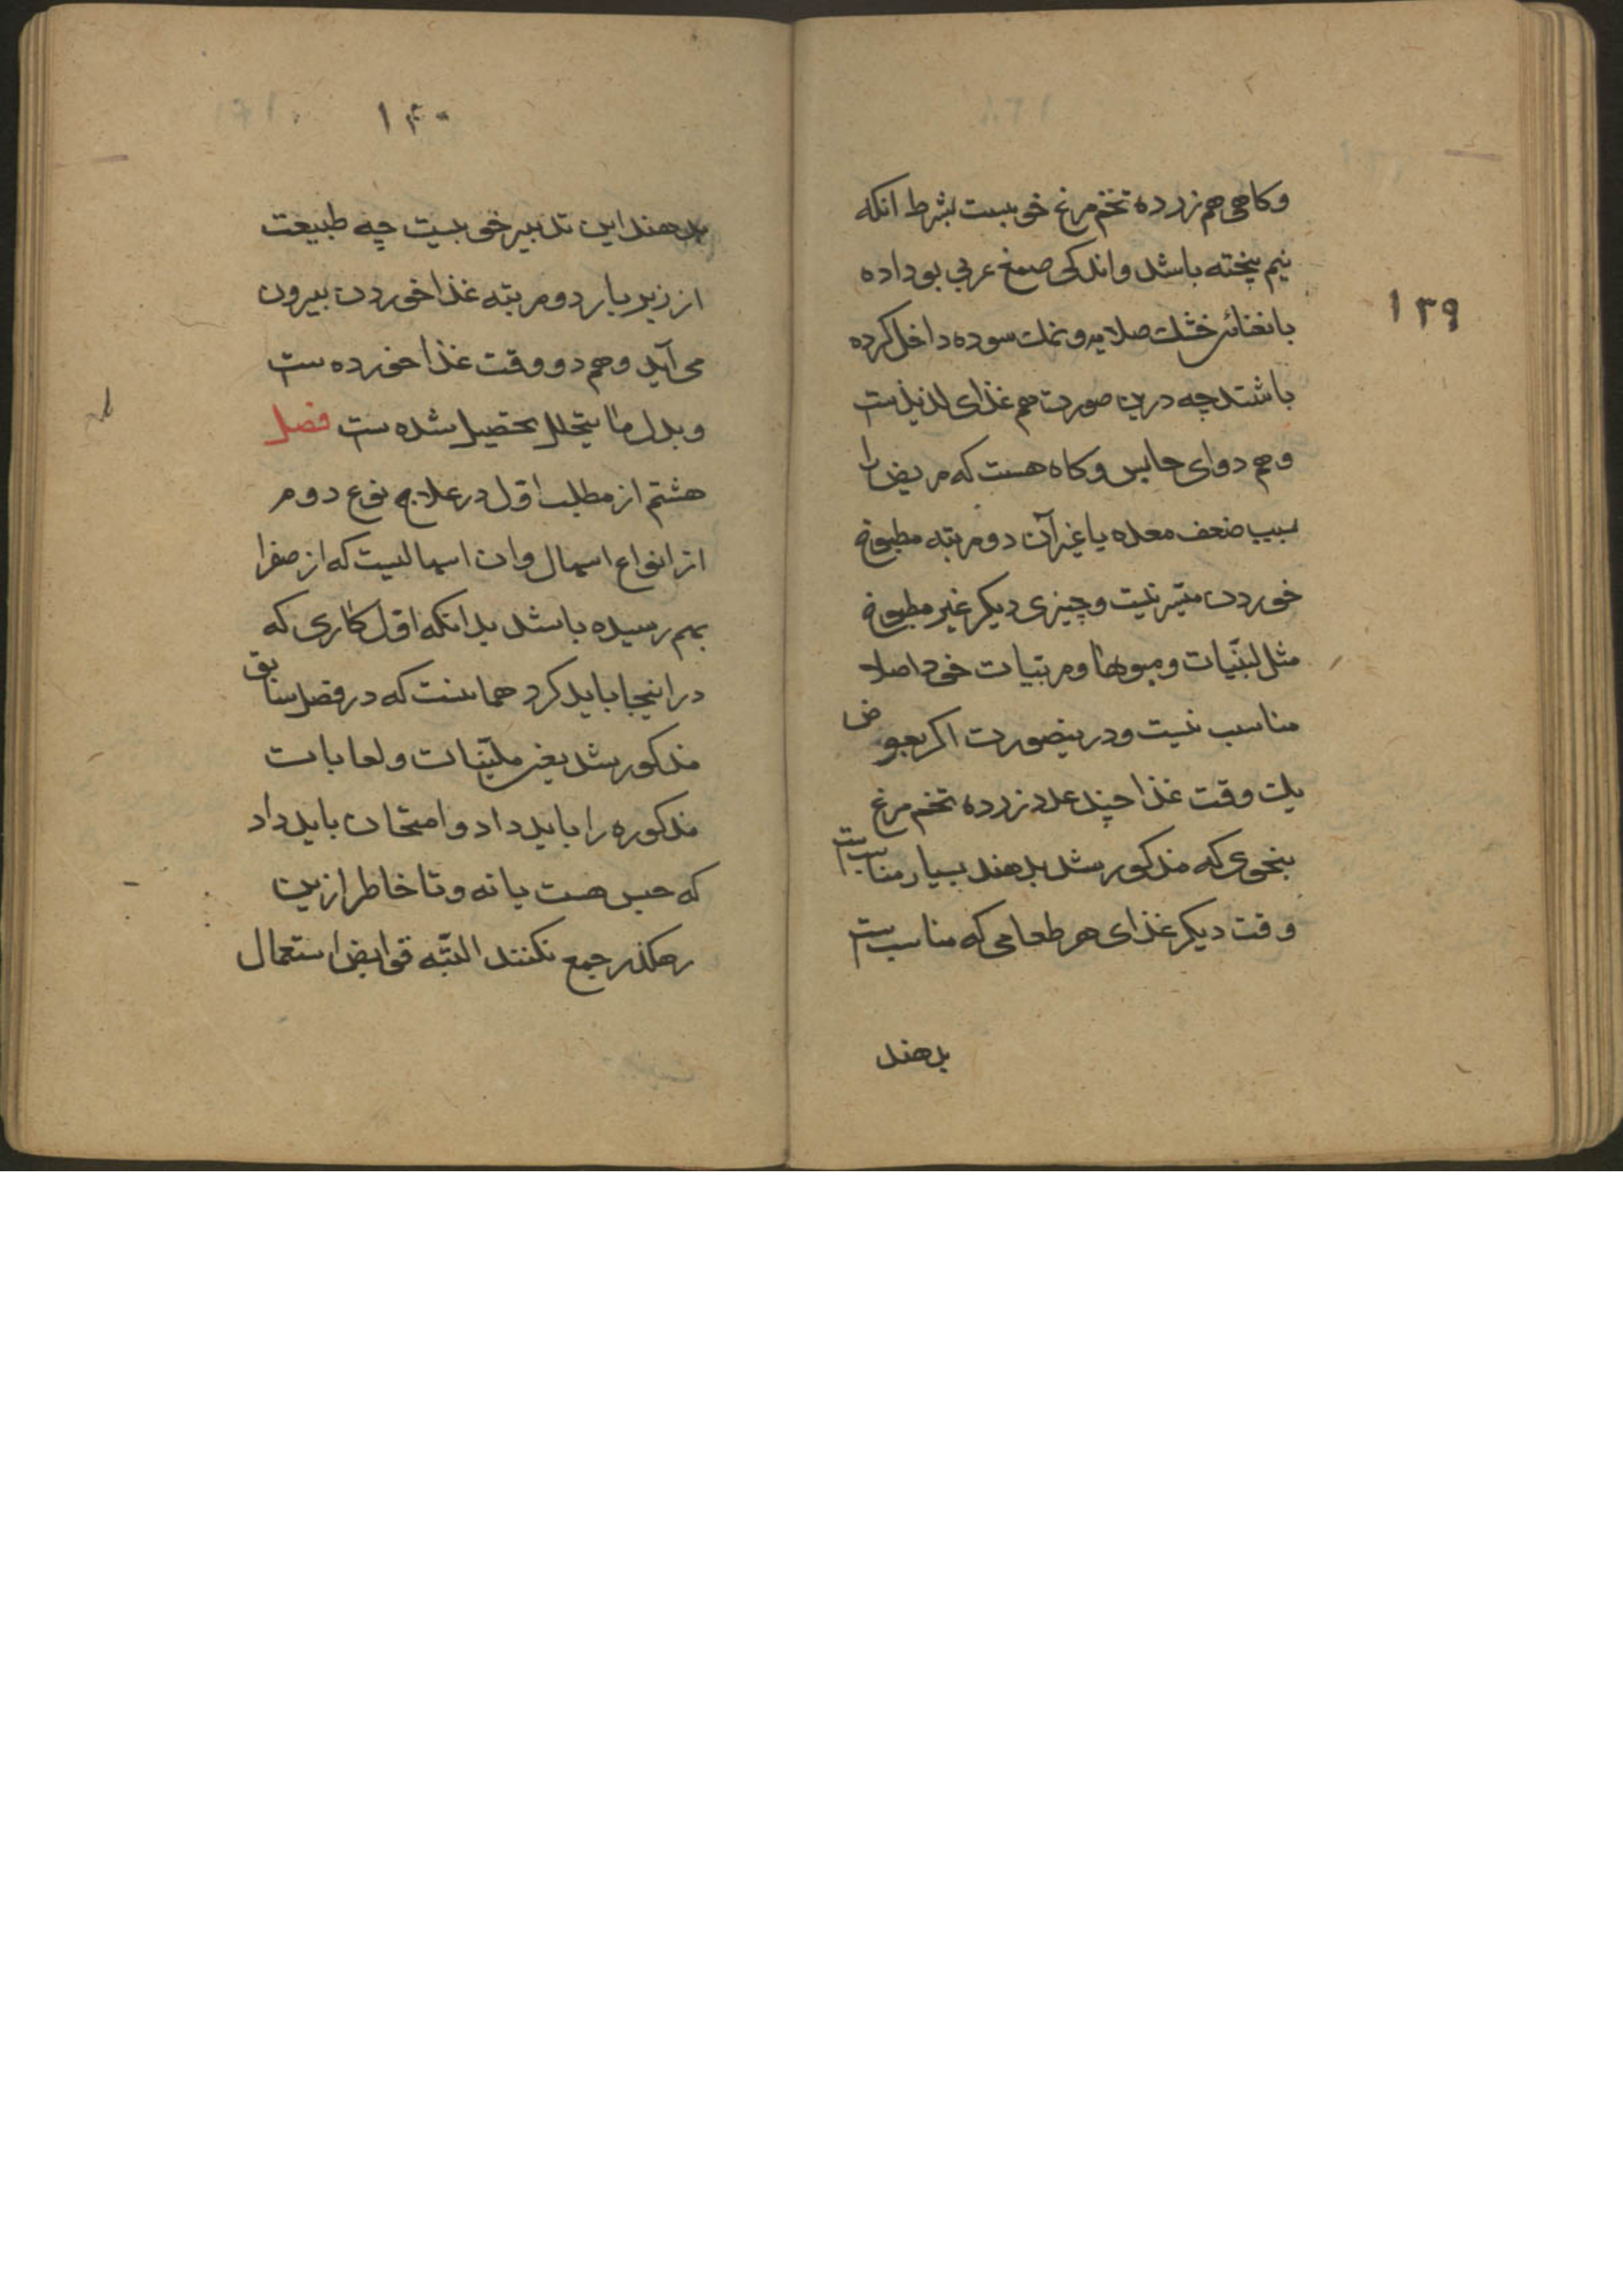 ۱۳۹
وکاهی هم زرده تخم مرغ خوبست بشرط انکه
نیم پخته باشد واندکی صمغ عربی بوداده
بانعناى خشک صلایه ونمک سوده داخل کرده
باشند چه درین صورت هم غذای لذیذست
وهم دوای حابس وکاه هست که مریض را
بسبب ضعف معده یا غیر آن دو مرتبه مطبوخ
خوردن میسر نیست وچیزی دیکر غیر مطبوخ
مثل لبنیات ومیوها ومربیات خود اصلا
مناسب نیست ودرینصورت اکر بعوض
یک وقت غذا چند عدد زرده تخم مرغ
بنحوی که مذکور شد بدهند بسیار مناسبست
وقت دیکر غذای هر طعامی که مناسبست
بدهند
۱۴۰
بدهند این تدبیر خوبیست چه طبیعت
از زیر بار دو مرتبه غذا خوردن بیرون
می آید وهم دو وقت غذا خورده ست
وبدل ما یتحلل تحصیل شده ست فصل
هشتم از مطلب اول در علاج نوع دوم
از انواع اسهال وان اسهالیست که از صفرا
بهم رسیده باشد بدانکه اول کاری که
در اینجا باید کرد همانست که در فصل سابق
مذکور شد یعنی ملینات ولعابات
مذکوره را باید داد وامتحان باید داد
که حبس هست یا نه وتا خاطر ازین
رهکذر جمع نکنند البته قوابض استعمال